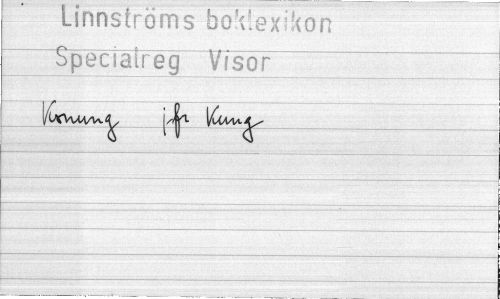 Linnströms boklexikon
Specialreg Visor
Konung jfr Kung